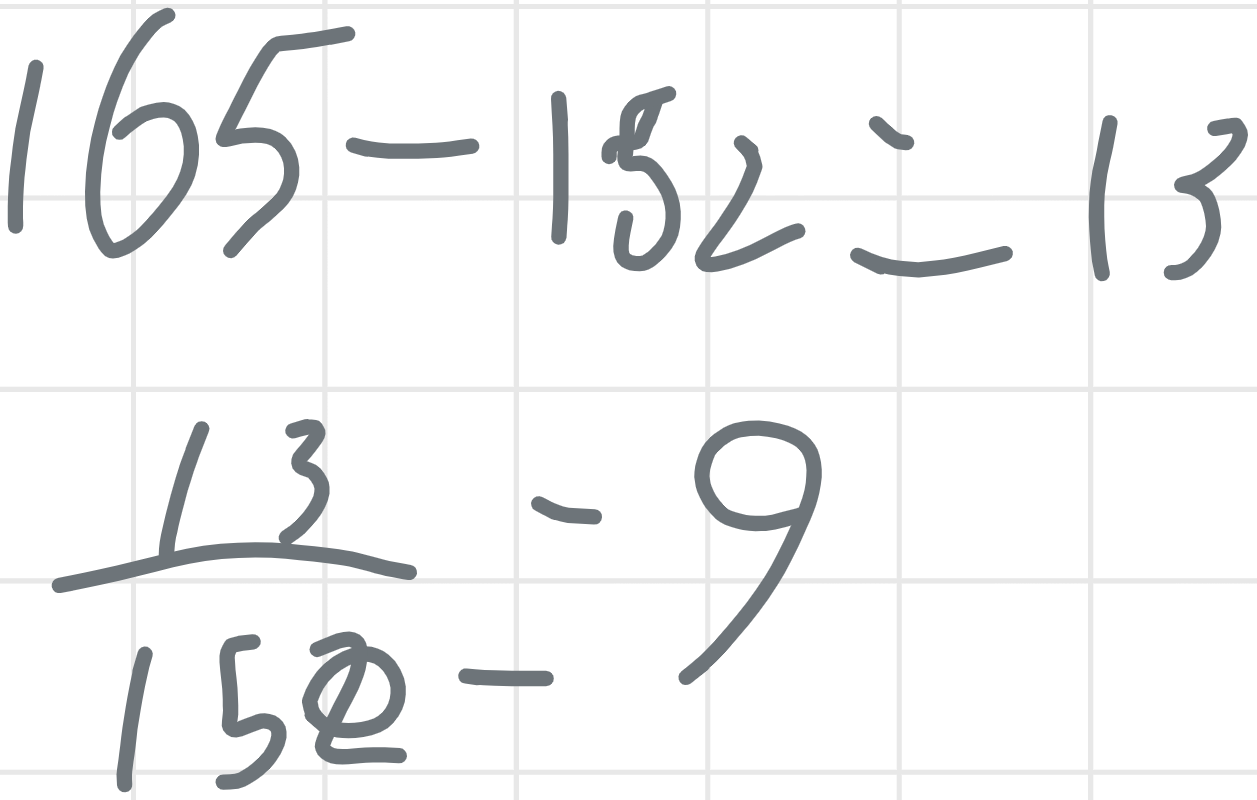 165-152=13
13/152=9